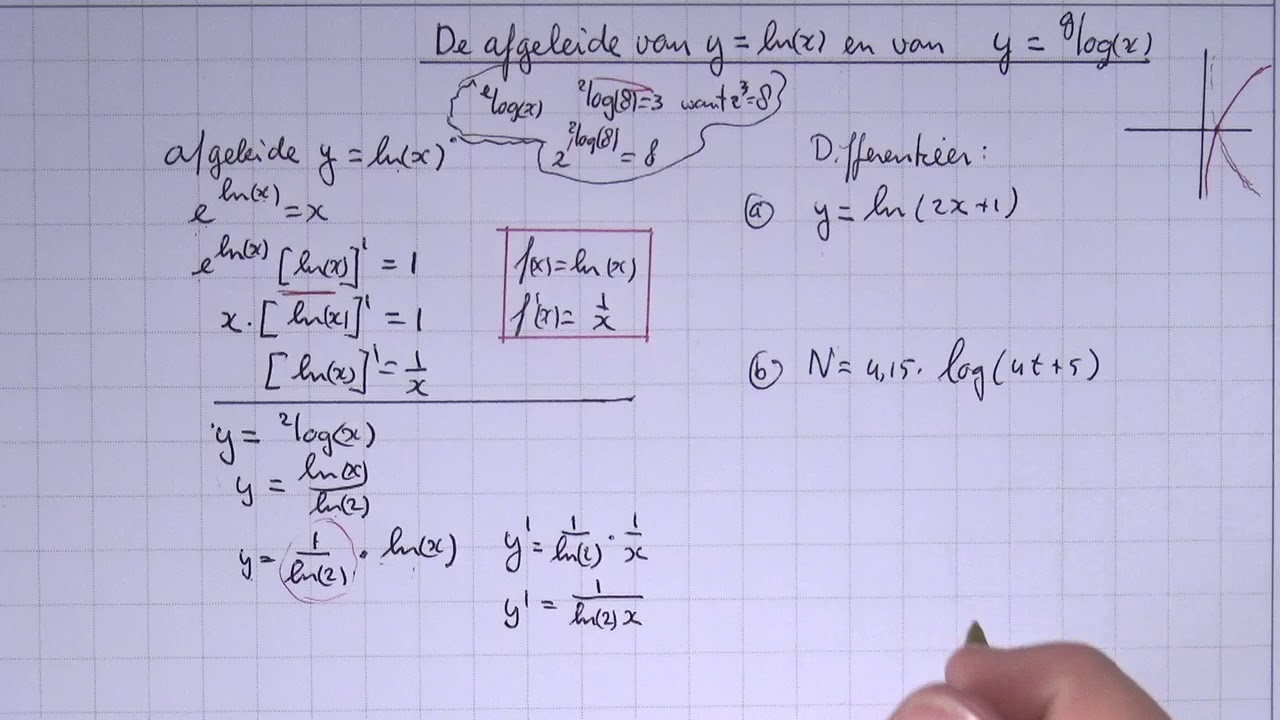 De afgeleide van y = ln(x) en van y = ᵍlog(x)
ᵉlog(x) ²log(8)=3 want 2³=8
2^(²log(8)) = 8
afgeleide y = ln(x)
e^(ln(x)) = x
e^(ln(x)) [ln(x)]' = 1
x · [ln(x)]' = 1
[ln(x)]' = 1/x
f(x) = ln(x)
f'(x) = 1/x
y = ²log(x)
y = ln(x)/ln(2)
y = 1/ln(2) · ln(x)
y' = 1/ln(2) · 1/x
y' = 1/(ln(2) x)
Differentiëer:
(a) y = ln(2x+1)
(b) N = 4,15 · log(4t+5)